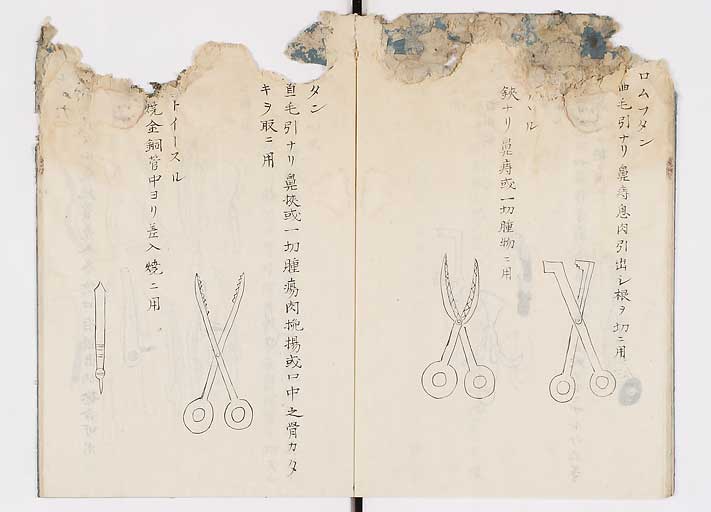 ロムフタン
曲毛引ナリ鼻痔息肉引出シ根ヲ切ニ用
ル
鋏ナリ鼻痔或一切腫物ニ用
タン
直毛引ナリ鼻痔或一切腫瘍肉挽揚或口中之骨カタ
キヲ取ニ用
トイースル
焼金銅管中ヨリ差入焼ニ用